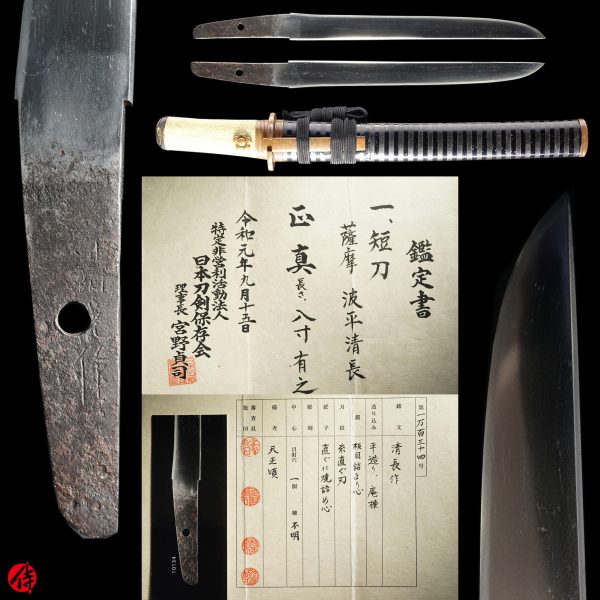 鑑定書
一、短刀
薩摩 波平清長
正真 長さ、八寸有之
令和元年九月十五日
特定非営利活動法人
日本刀剣保存会
理事長 宮野貞司
第一万百三十四号
銘文 清長作
造り込み 平造り 庵棟
鍛 板目詰まり心
刃紋 糸直ぐ刃
鋩子 直ぐに焼詰め心
彫刻
中心 目釘穴 一個 鑢 不明
備考 天正頃
審査員
10134
侍